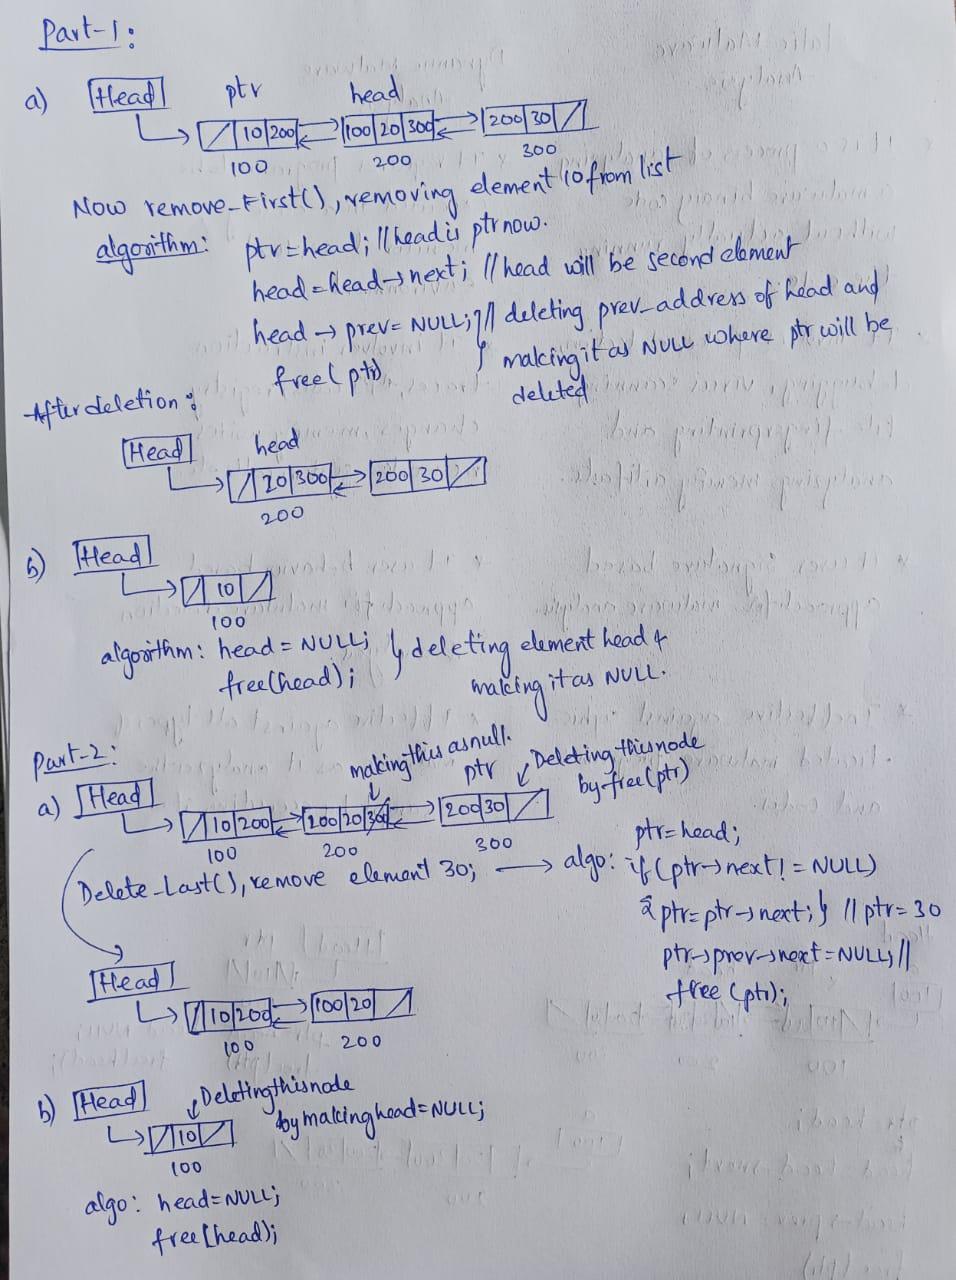 Part-1:
a) Head ptr head
/ 10 200 100 20 300 200 30 /
100 200 300
Now remove-First(), removing element 10 from list
algorithm: ptr = head; // head is ptr now.
head = head → next; // head will be second element
head → prev = NULL; } // deleting prev_address of head and
free(ptr) making it as NULL where ptr will be
deleted
After deletion:
Head head
/ 20 300 200 30 /
200
b) Head
/ 10 /
100
algorithm: head = NULL; } deleting element head &
free(head); making it as NULL.
Part-2:
making this as null.
a) Head ptr Deleting this node
by free(ptr)
/ 10 200 200 20 300 200 30 /
100 200 300
ptr = head;
Delete-Last(), remove element 30; → algo: if (ptr → next! = NULL)
{ ptr = ptr → next; } // ptr = 30
ptr → prev → next = NULL; //
free (ptr);
Head
/ 10 200 100 20 /
100 200
b) Head Deleting this node
by making head = NULL;
/ 10 /
100
algo: head = NULL;
free(head);